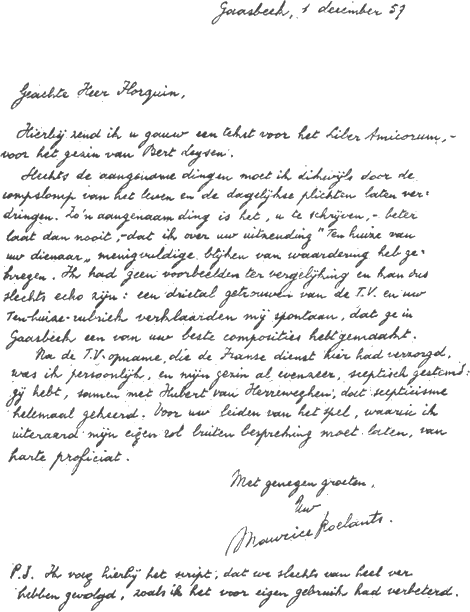 Gaasbeek, 1 december 57
Geachte Heer Florquin,
Hierbij zend ik u gauw een tekst voor het Liber Amicorum, -
voor het gezin van Bert Leysen.
Slechts de aangename dingen moet ik dikwijls door de
rompslomp van het leven en de dagelijkse plichten laten ver=
dringen. Zo'n aangenaam ding is het, u te schrijven, - beter
laat dan nooit, - dat ik over uw uitzending "Ten huize van
uw dienaar" menigvuldige blijken van waardering heb ge=
kregen. Ik had geen voorbeelden ter vergelijking en kan dus
slechts echo zijn: een drietal getrouwen van de T.V. en uw
Ten-huize-rubriek verklaarden mij spontaan, dat ge in
Gaasbeek een van uw beste composities hebt gemaakt.
Na de T.V. opname, die de Franse dienst hier had verzorgd,
was ik persoonlijk, en mijn gezin al evenzeer, sceptisch gestemd:
gij hebt, samen met Hubert van Herreweghen, dat scepticisme
helemaal gekeerd. Voor uw leiden van het spel, waarin ik
uiteraard mijn eigen rol buiten bespreking moet laten, van
harte proficiat.
Met genegen groeten,
Uw
Maurice Roelants.
P.S. Ik voeg hierbij het script, dat we slechts van heel ver
hebben gevolgd, zoals ik het voor eigen gebruik had verbeterd.